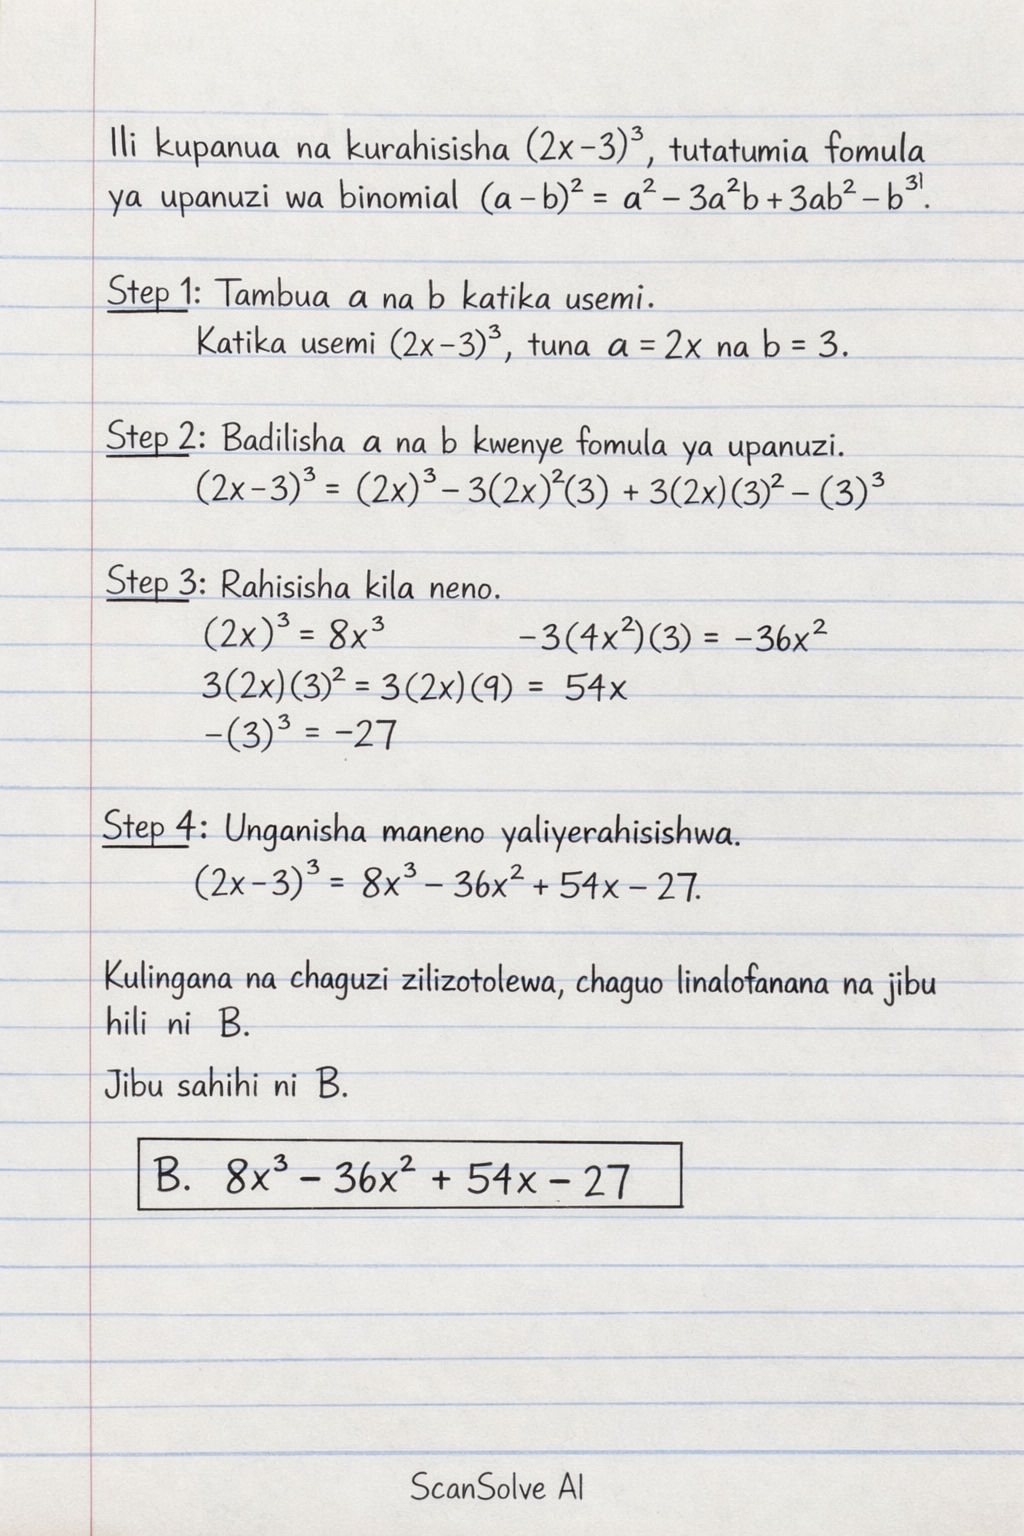 Ili kupanua na kurahisisha (2x-3)³, tutatumia fomula
ya upanuzi wa binomial (a-b)² = a² - 3a²b + 3ab² - b³ˡ.
Step 1: Tambua a na b katika usemi.
Katika usemi (2x-3)³, tuna a = 2x na b = 3.
Step 2: Badilisha a na b kwenye fomula ya upanuzi.
(2x-3)³ = (2x)³ - 3(2x)²(3) + 3(2x)(3)² - (3)³
Step 3: Rahisisha kila neno.
(2x)³ = 8x³ -3(4x²)(3) = -36x²
3(2x)(3)² = 3(2x)(9) = 54x
-(3)³ = -27
Step 4: Unganisha maneno yaliyerahisishwa.
(2x-3)³ = 8x³ - 36x² + 54x - 27.
Kulingana na chaguzi zilizotolewa, chaguo linalofanana na jibu
hili ni B.
Jibu sahihi ni B.
B. 8x³ - 36x² + 54x - 27
ScanSolve AI